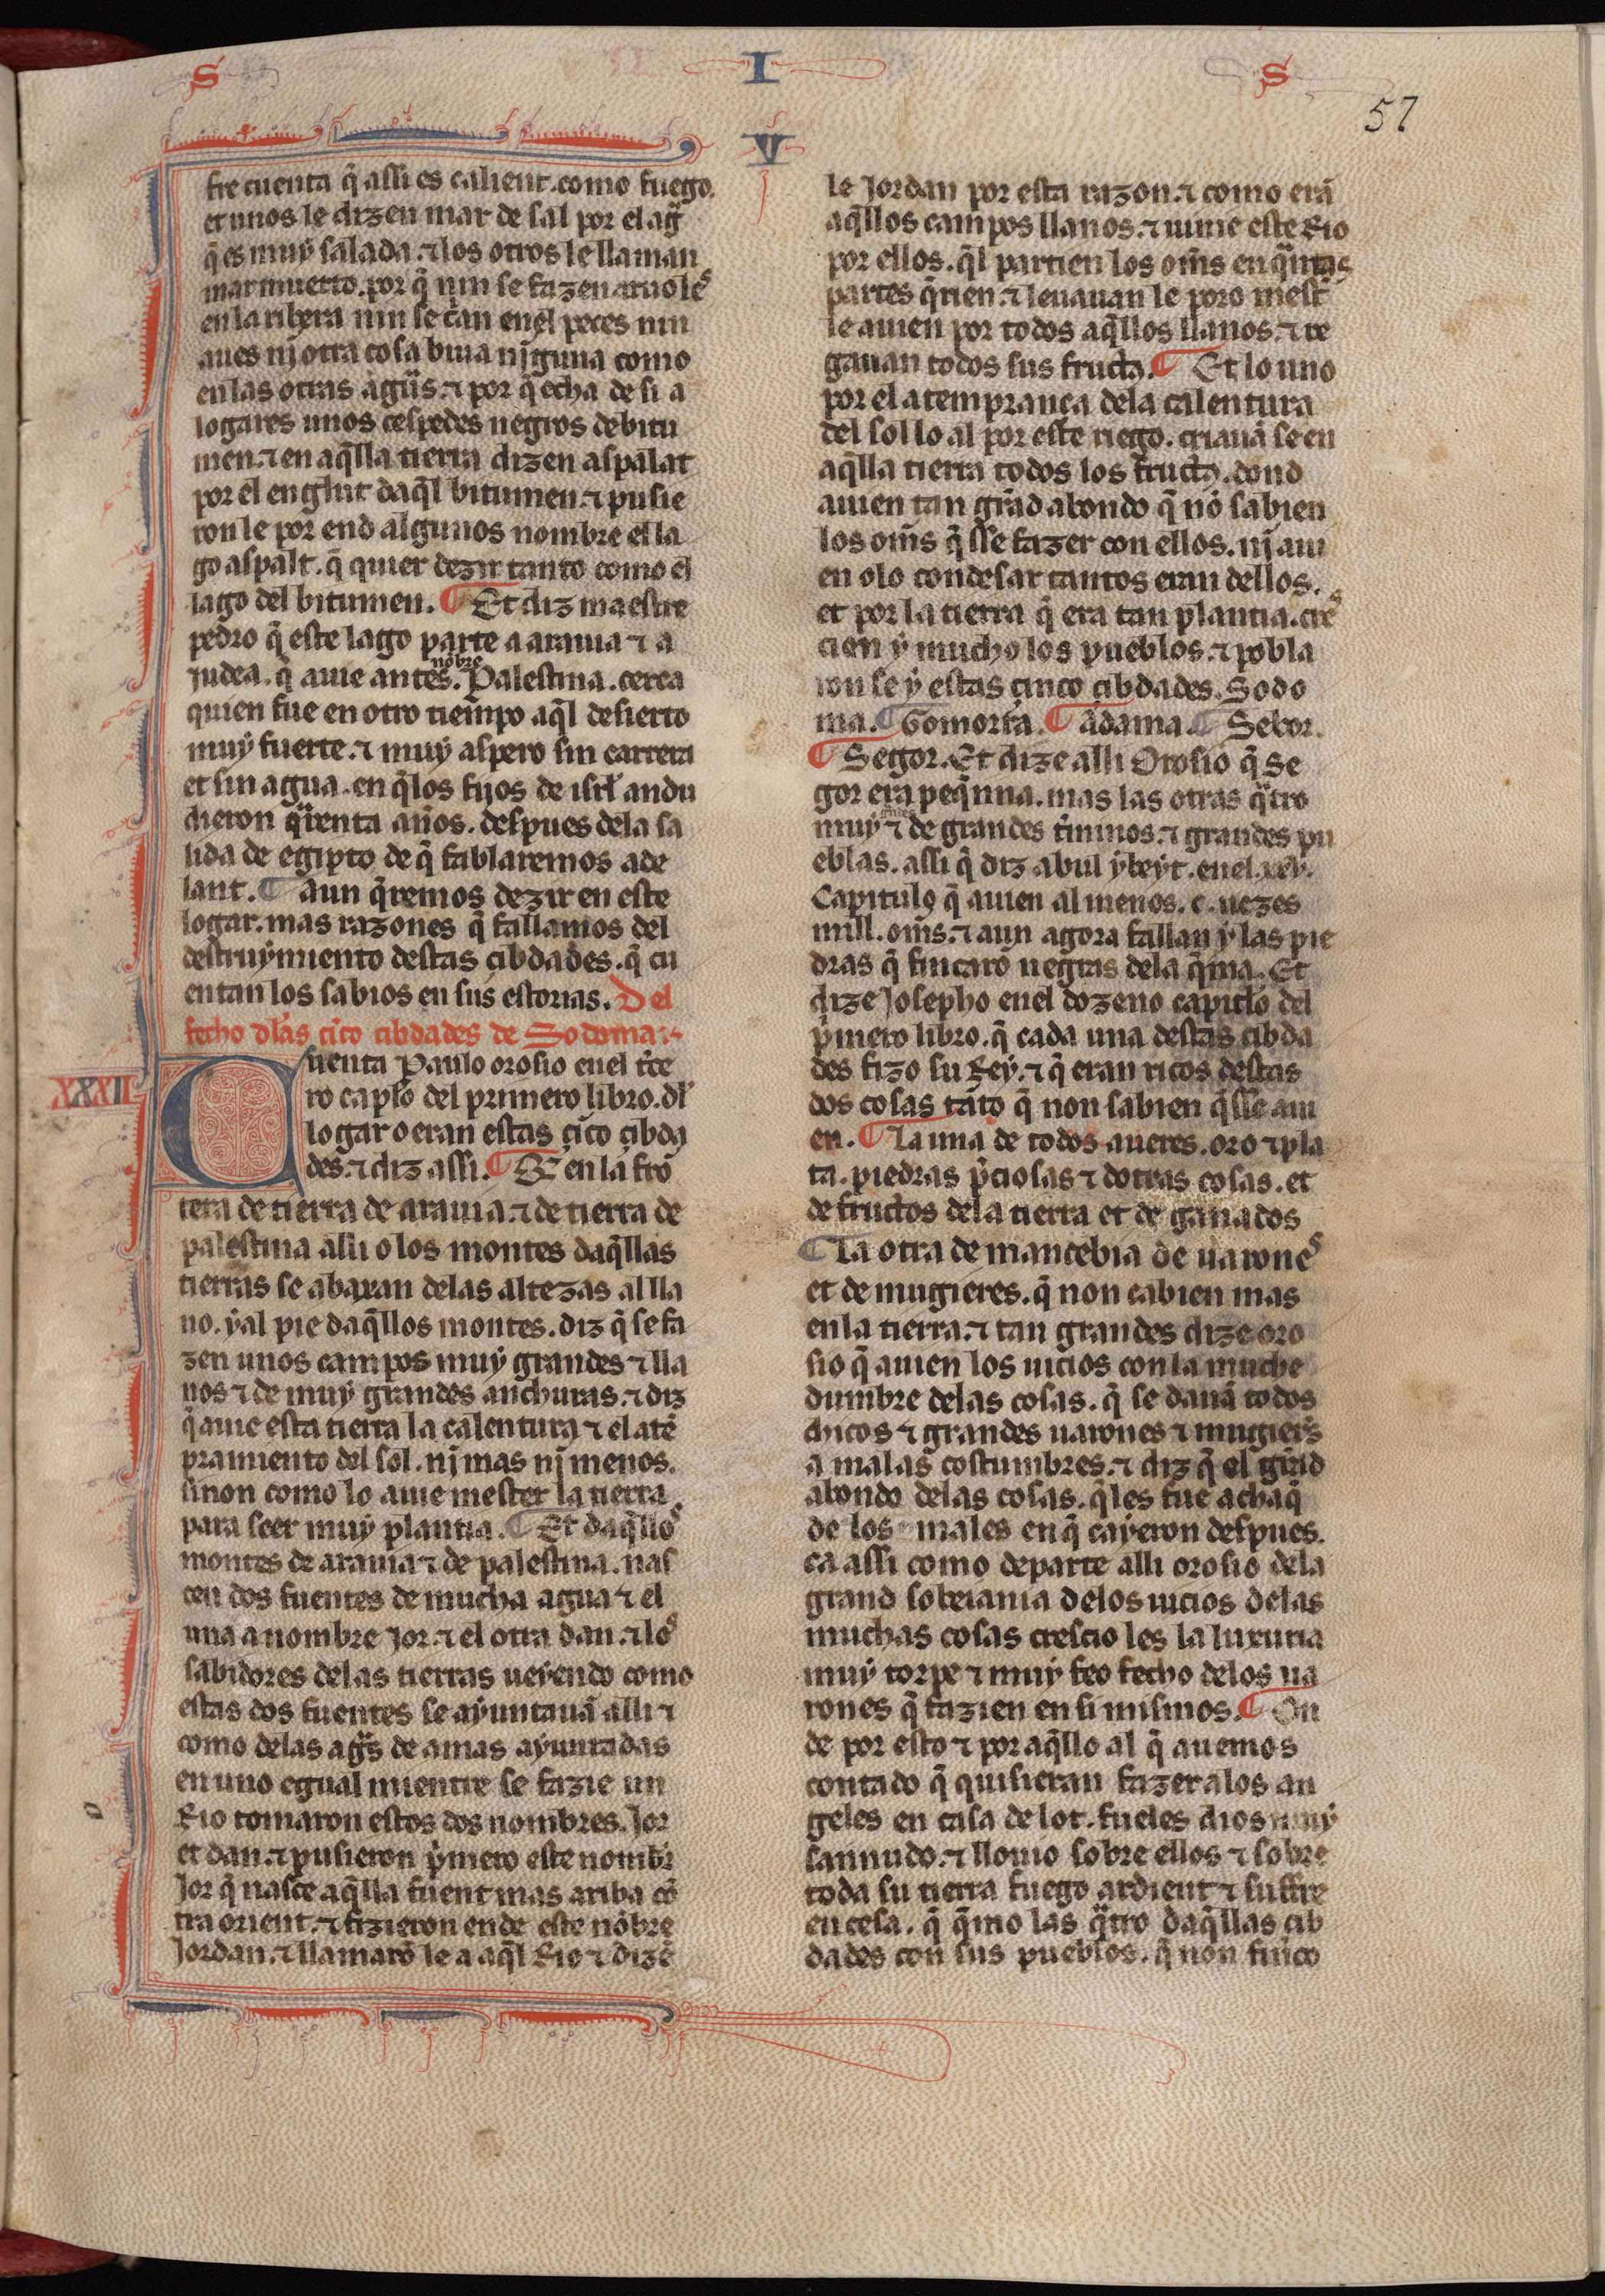 S I S
57
V
fre cuenta q̃ assi es calient. como fuego.
et unos le dizen mar de sal por el agᷓ
q̃ es muy salada. ⁊ los otros le llaman
mar muerto. por q̃ nin se fazen aruoleˢ
en la ribera nin se c̃an enel peces nin
aues nj otra cosa biua njguna como
en las otras agᷓs. ⁊ por q̃ echa de si a
logares unos cespedes negros de bitu
men. ⁊ en aq̃lla tierra dizen aspalat
por el englut daq̃l bitumen. ⁊ pusie
ron le por end algunos nombre el la
go aspalt. q̃ quier dezir tanto como el
lago del bitumen. ¶ Et diz maestre
pedro q̃ este lago parte a arauia ⁊ a
judea. q̃ auie antes nõbre. Palestina. cerca
quien fue en otro tiempo aq̃l desierto
muy fuerte. ⁊ muy aspero sin carrera
et sin agua. en q̃ los fijos de isrł andu
dieron qᷓrenta años. despues dela sa
lida de egipto de q̃ fablaremos ade
lant. ¶ Aun q̃remos dezir en este
logar. mas razones q̃ fallamos del
destruymiento destas cibdades. q̃ cu
entan los sabios en sus estorias. Del
fecho dlas cĩco cibdades de Sodoma.
XXXII
Cuenta Paulo orosio enel t̃ce
ro capłó del primero libro. dł
logar o eran estas cĩco cibda
des. ⁊ diz assi. ¶ Et en la frõ
tera de tierra de arauia. ⁊ de tierra de
palestina alli o los montes daq̃llas
tierras se abaxan delas altezas al lla
no. y al pie daq̃llos montes. diz q̃ se fa
zen unos campos muy grandes ⁊ lla
nos ⁊ de muy grandes anchuras. ⁊ diz
q̃ auie esta tierra la calentura ⁊ el atẽ
pramiento del sol. nj mas nj menos.
sinon como lo auie mester la tierra
para seer muy plantia. ¶ Et daq̃lloˢ
montes de arauia ⁊ de palestina. nas
cen dos fuentes de mucha agua ⁊ el
una a nombre Jor. ⁊ el otra dan. ⁊ loˢ
sabidores delas tierras ueyendo como
estas dos fuentes se ayuntauã alli ⁊
como delas agᷓs de amas ayuntadas
en uno egual mientre se fazie un
Rio tomaron estos dos nombres. Jor
et dan. ⁊ pusieron p̃mero este nombr̃
Jor q̃ nasce aq̃lla fuent mas ariba cõ
tra orient. ⁊ fizieron ende este nõbre
Jordan. ⁊ llamarõ le a aq̃l Rio ⁊ dizẽ
le Jordan por esta razon. ⁊ como erã
aq̃llos campos llanos. ⁊ uinie este Rio
por ellos. q̃l partien los om̃s en qᷓntas
partes q̃rien. ⁊ leuauan le poro mest̃
le auien por todos aq̃llos llanos. ⁊ re
gauan todos sus fructꝯ. ¶ Et lo uno
por el atempranca dela calentura
del sol lo al por este riego. criauã se en
aq̃lla tierra todos los fructꝯ. dond
auien tan grãd abondo q̃ nõ sabien
los om̃s q̃ sse fazer con ellos. nj aui
en olo condesar tantos eran dellos.
et por la tierra q̃ era tan plantia. creˢ
cien y mucho los pueblos. ⁊ pobla
ron se y estas cinco cibdades. Sodo
ma. ¶ Gomorra. ¶ Adama. ¶ Sebor.
¶ Segor. Et dize alli Orosio q̃ Se
gor era peq̃nna. mas las otras qᷓtro
muy ⁊ de grandes t̃minos. ⁊ grandes pu
eblas. assi q̃ diz abul ybeyt. enel. xxv.
Capitulo q̃ auien al menos. c. uezes
mill. om̃s. ⁊ aun agora fallan y las pie
dras q̃ fincarõ negras dela q̃ma. Et
dize Josepho enel dozeno capitło del
p̃mero libro. q̃ cada una destas cibda
des fizo su Rey. ⁊ q̃ eran ricos destas
dos cosas tãto q̃ non sabien q̃ sse aui
en. ¶ La una de todos aueres. oro ⁊ pla
ta. piedras p̃ciosas ⁊ dotras cosas. et
de fructos dela tierra et de ganados
¶ La otra de mancebia de uaroneˢ
et de mugieres. q̃ non cabien mas
en la tierra. ⁊ tan grandes dize oro
sio q̃ auien los uicios con la muche
dumbre delas cosas. q̃ se dauã todos
chicos ⁊ grandes uarones ⁊ mugier̃s
a malas costumbres. ⁊ diz q̃ el grãd
abondo delas cosas. q̃les fue achaq̃
de los males en q̃ cayeron despues.
ca assi como departe alli orosio dela
grand sobeiania delos uicios delas
muchas cosas crescio les la luxuria
muy torpe ⁊ muy feo fecho delos ua
rones q̃ fazien en si mismos. ¶ On
de por esto ⁊ por aq̃llo al q̃ auemos
contado q̃ quisieran fazer alos an
geles en casa de lot. fueles dios muy
sannudo. ⁊ llouio sobre ellos ⁊ sobre
toda su tierra fuego ardient ⁊ suffre
encesa. q̃ q̃mo las qᷓtro daq̃llas cib
dades con sus pueblos. q̃ non finco